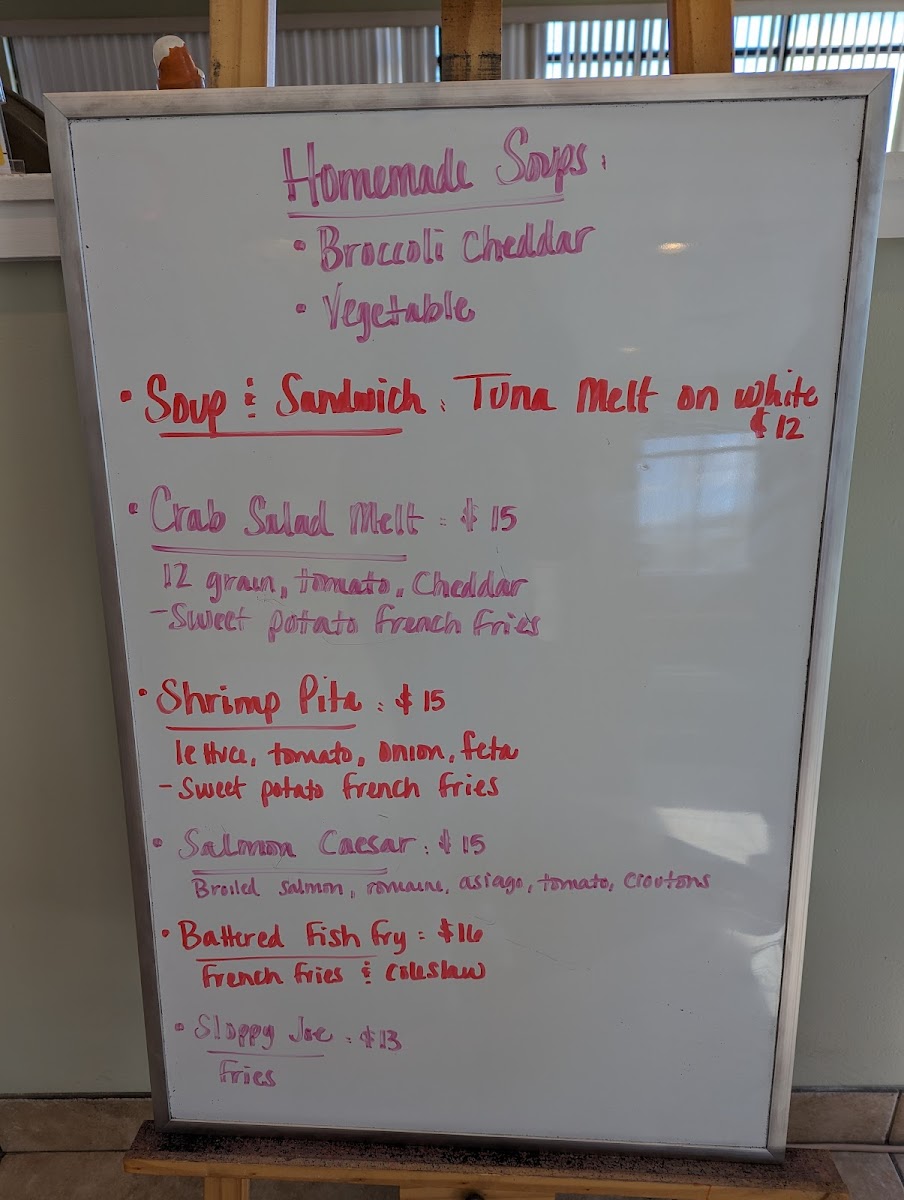 Homemade Soups:
• Broccoli Cheddar
• Vegetable
• Soup & Sandwich: Tuna Melt on white
$12
• Crab Salad Melt: $15
12 grain, tomato, Cheddar
- Sweet potato french fries
• Shrimp Pita: $15
lettuce, tomato, onion, feta
- Sweet potato french fries
• Salmon Caesar: $15
Broiled salmon, romaine, asiago, tomato, croutons
• Battered Fish Fry: $16
French fries & coleslaw
• Sloppy Joe: $13
fries